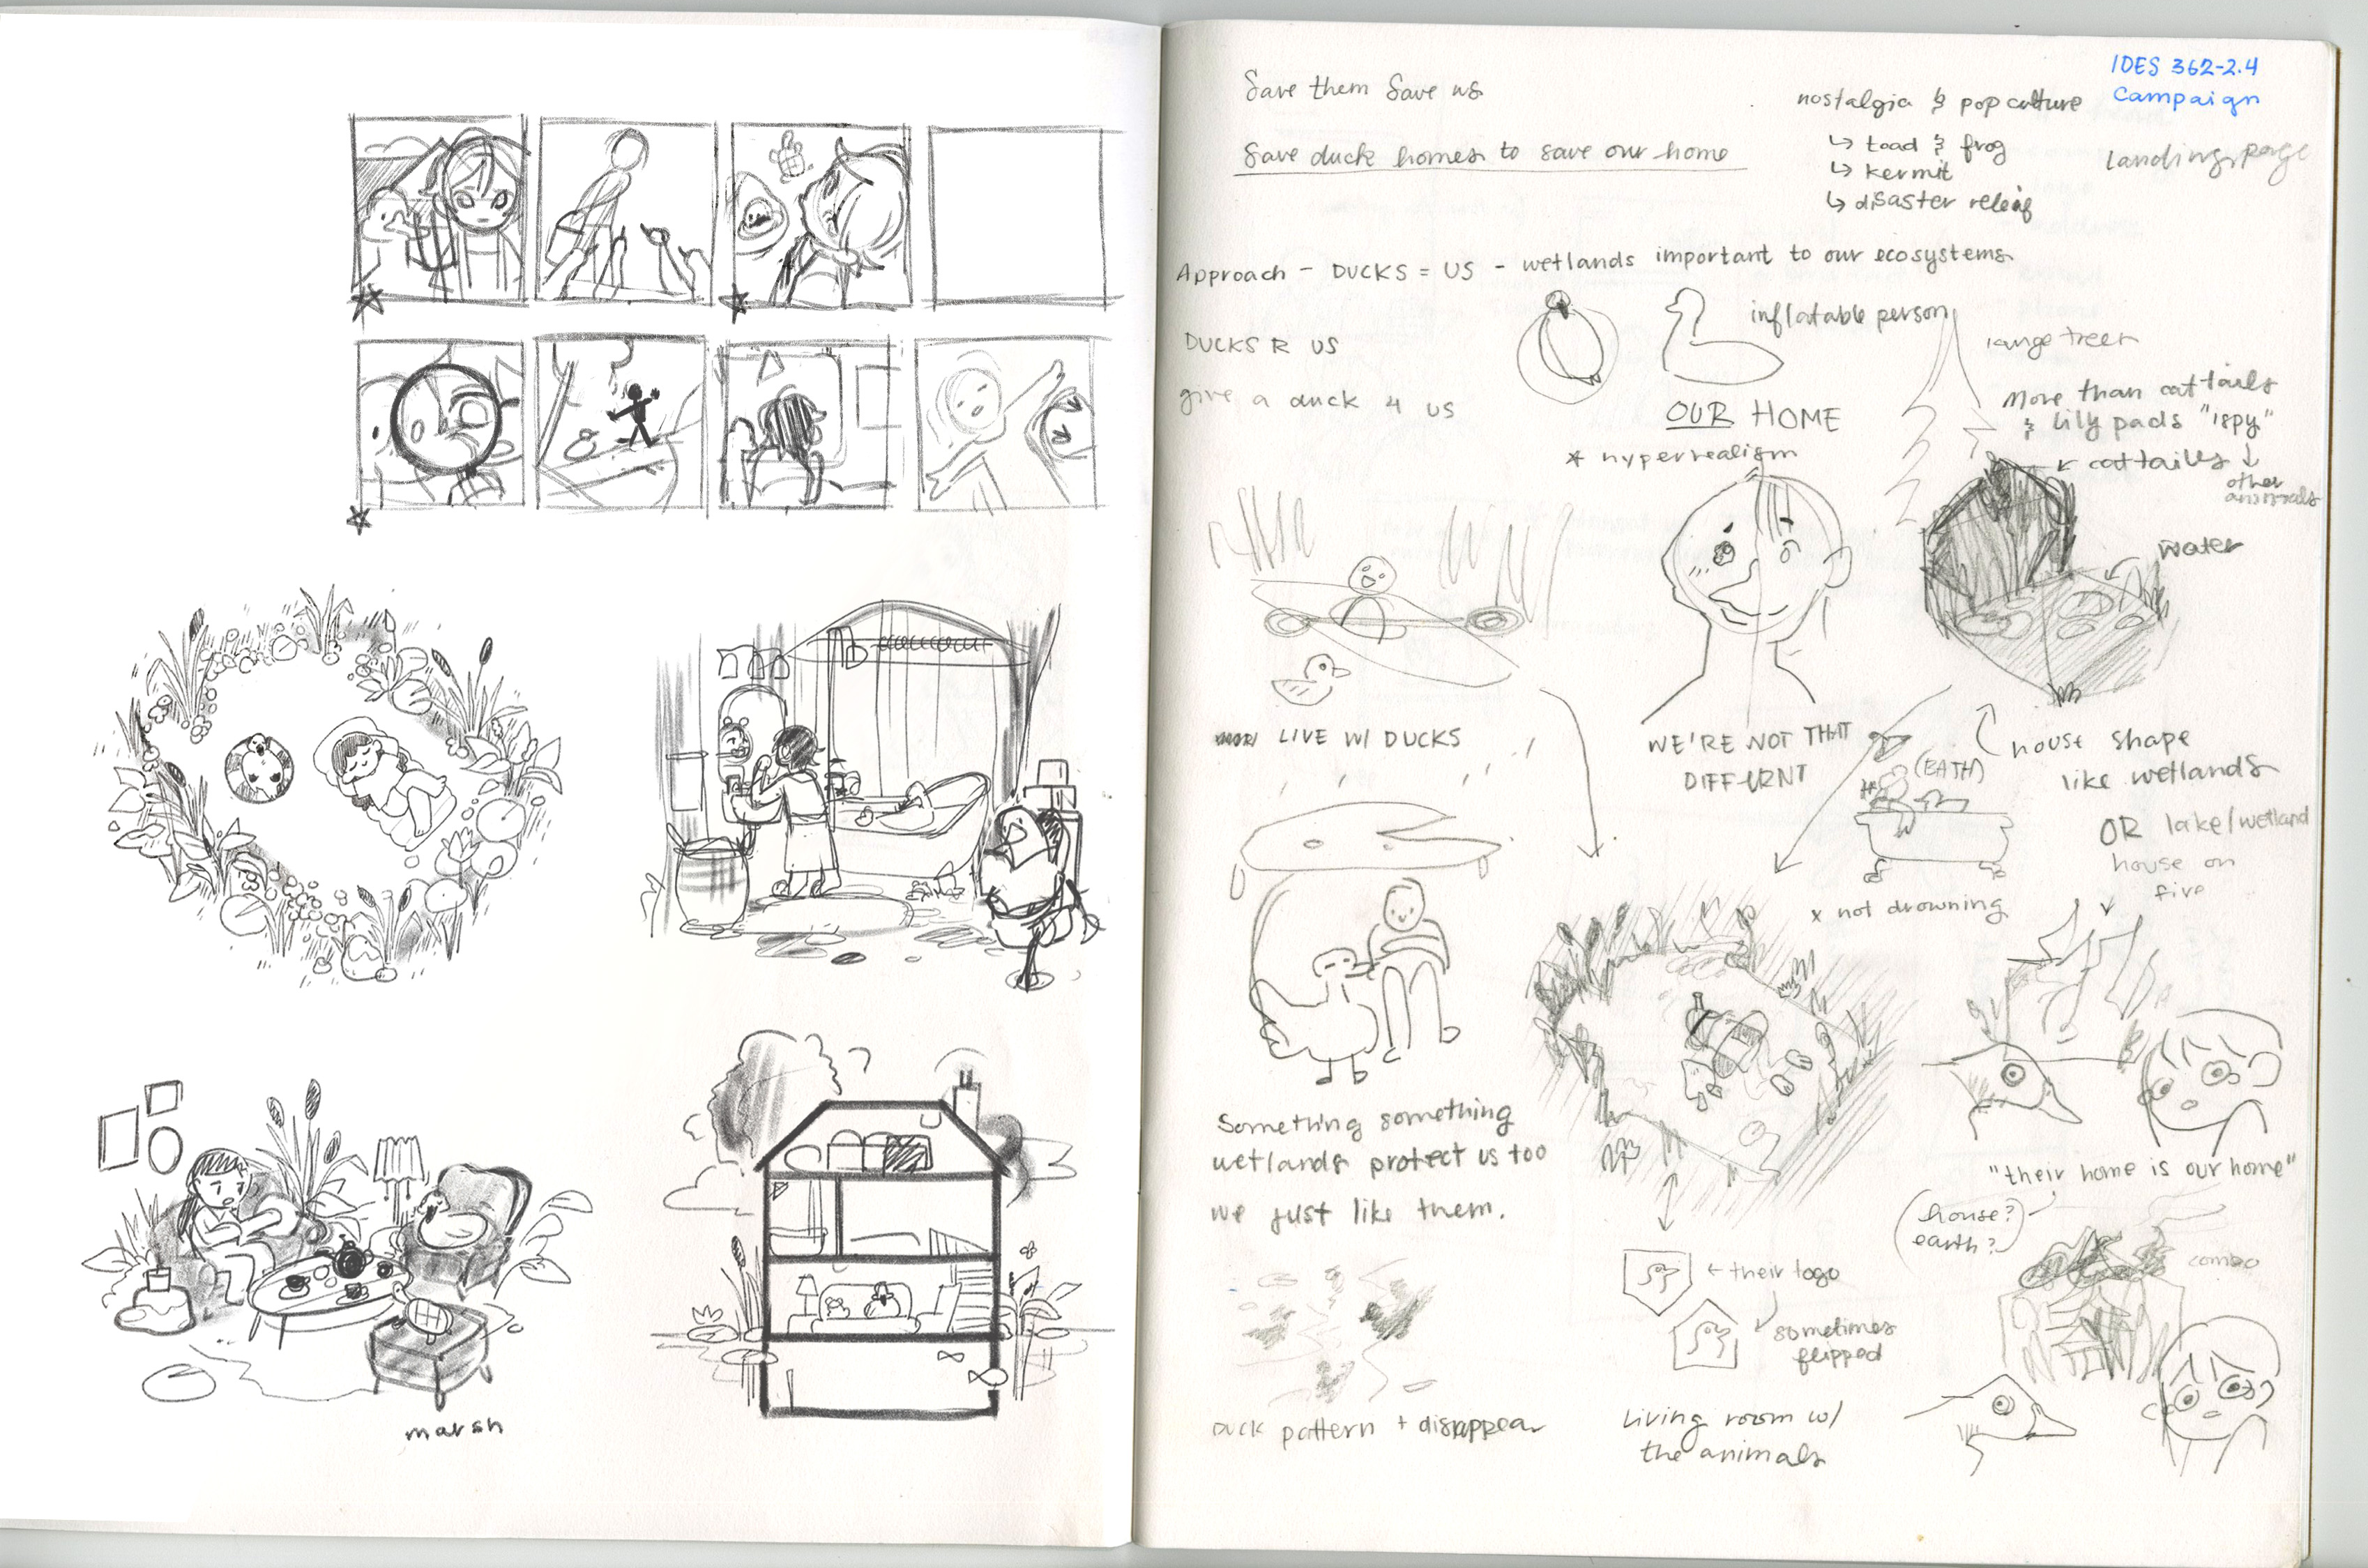 marsh
IDES 362-2.4
Campaign
Save them Save us
Save duck homes to save our home
nostalgia & pop culture
↳ toad & frog
↳ kermit
↳ disaster releif
landing page
Approach - DUCKS = US - wetlands important to our ecosystems
DUCKS R US
give a duck 4 US
inflatable person
OUR HOME
* hyperrealism
More than cattails
& lily pads "ispy"
↓
other
animals
← cattails
water
LIVE W/ DUCKS
WE'RE NOT THAT
DIFFERNT
(BATH)
x not drowning
house shape
like wetlands
OR lake/wetland
house on
fire
Something something
wetlands protect us too
we just like them.
"their home is our home"
(house?
earth?)
combo
← their logo
sometimes
flipped
Duck pattern + disappear
Living room w/
the animals